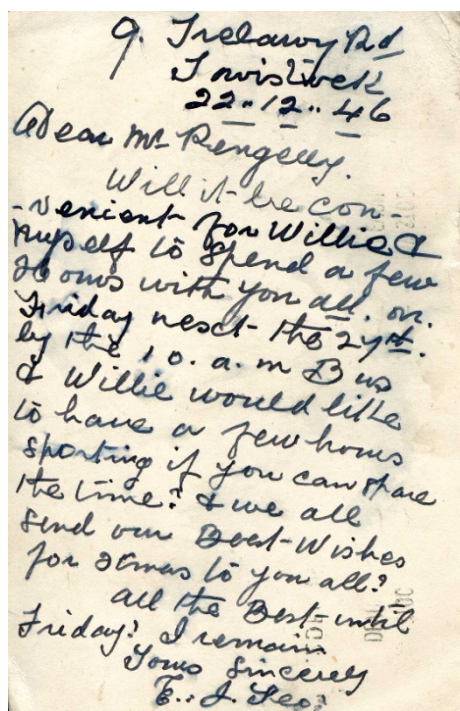 9. Trelawny Rd
Tavistock
22..12..46
Dear Mr Pengelly.
Will it be con-
-venient for Willie &
myself to spend a few
Hours with you all. on.
Friday next the 27th.
by the 10.a.m Bus
& Willie would like
to have a few hours
sporting if you can spare
the time? & we all
send our Best Wishes
for Xmas to you all?
all the Best until
Friday? I remain
Yours Sincerely
E..J.